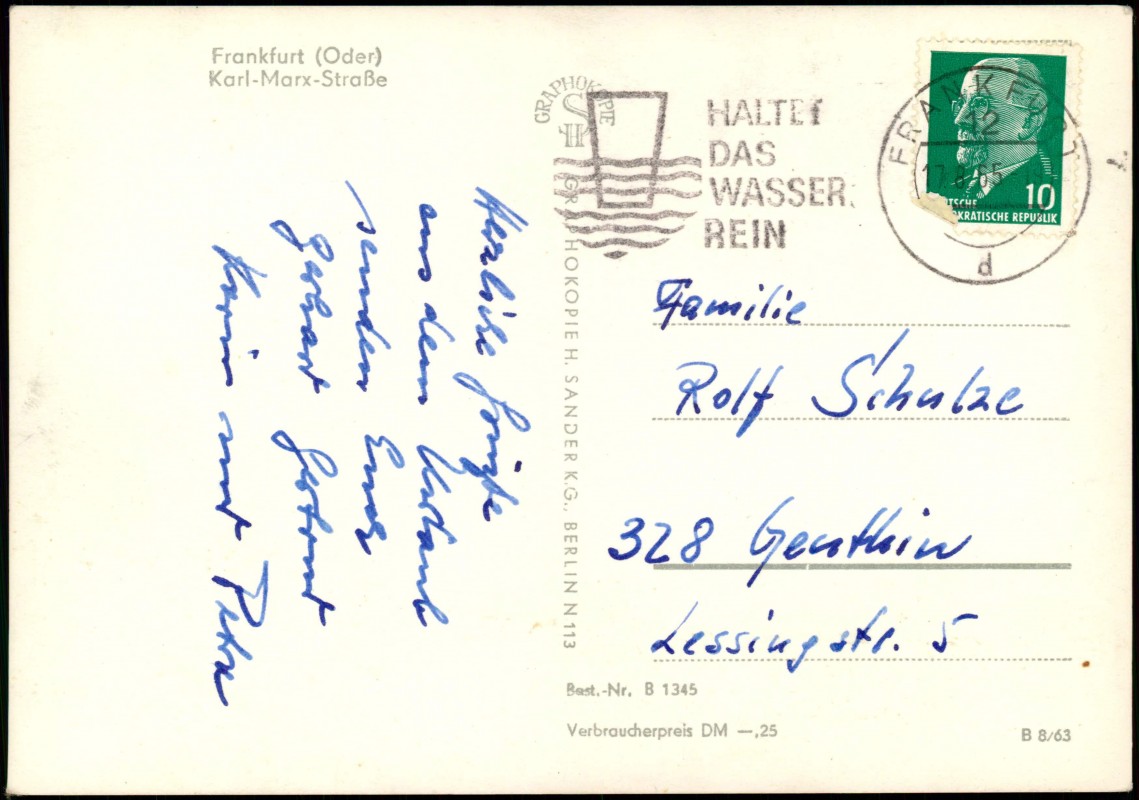 Frankfurt (Oder)
Karl-Marx-Straße
Herzliche Grüße
aus dem Urlaub
senden Euch
Gerhart Gertrud
Karin und Petra
GRAPHOKOPIE
H
GRAPHOKOPIE H. SANDER K.G., BERLIN N 113
HALTET
DAS
WASSER
REIN
FRANKFURT
12
17.8.65
d
10
TSCHE
OKRATISCHE REPUBLIK
Familie
Rolf Schulze
328 Genthin
Lessingstr. 5
Best.-Nr. B 1345
Verbraucherpreis DM —,25
B 8/63